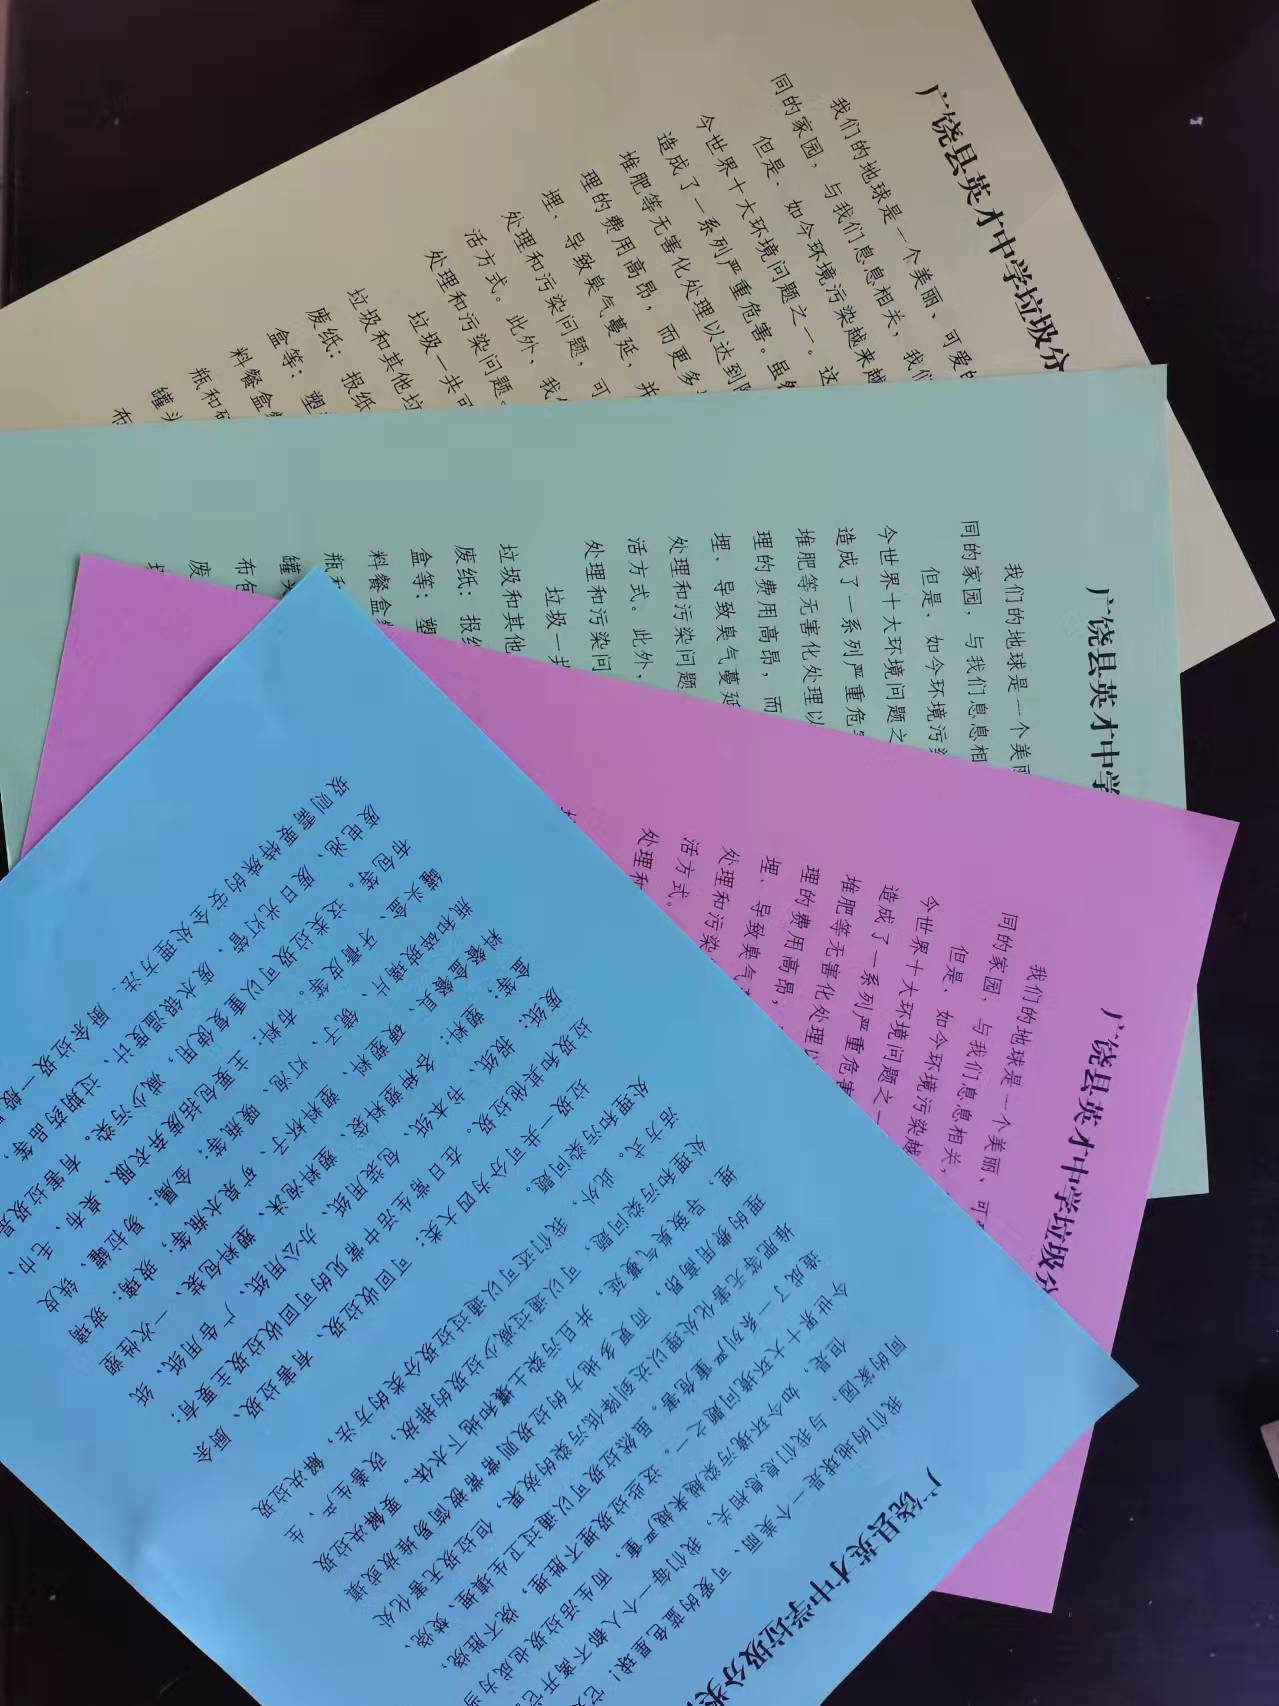 广饶县英才中学垃圾分
我们的地球是一个美丽、可爱
同的家园，与我们息息相关，我们
但是，如今环境污染越来越
今世界十大环境问题之一。这
造成了一系列严重危害。虽
堆肥等无害化处理以达到
理的费用高昂，而更多
埋，导致臭气蔓延，并
处理和污染问题，可
活方式。此外，我
处理和污染问题。
垃圾一共可
垃圾和其他垃
废纸：报纸
盒等；塑
料餐盒
瓶和
罐头
布
广饶县英才中学
我们的地球是一个美
同的家园，与我们息息相
但是，如今环境污
今世界十大环境问题之
造成了一系列严重危
堆肥等无害化处理以
理的费用高昂，而
埋，导致臭气蔓延
处理和污染问题
活方式。此外，
处理和污染问
垃圾一共
垃圾和其他
废纸：报
盒等；塑
料餐盒
瓶和
罐头
布包
废
广饶县英才中学垃圾分
我们的地球是一个美丽、可
同的家园，与我们息息相关，
但是，如今环境污染越
今世界十大环境问题之一
造成了一系列严重危害
堆肥等无害化处理以
理的费用高昂，
埋，导致臭气
处理和污染
活方式。
处理和
广饶县英才中学垃圾分类
我们的地球是一个美丽、可爱的蓝色星球！它
同的家园，与我们息息相关，我们每一个人都不离开它
但是，如今环境污染越来越严重，而生活垃圾也成为当
今世界十大环境问题之一。这些垃圾埋不胜埋，烧不胜烧，
造成了一系列严重危害。虽然垃圾可以通过卫生填埋、焚烧、
堆肥等无害化处理以达到降低污染的效果，但垃圾无害化处
理的费用高昂，而更多地方的垃圾则常常被简易堆放或填
埋，导致臭气蔓延，并且污染土壤和地下水体。要解决垃圾
处理和污染问题，可以通过减少垃圾的排放，改善生产、生
活方式。此外，我们还可以通过垃圾分类的方法，解决垃圾
处理和污染问题。
垃圾一共可分为四大类：可回收垃圾、有害垃圾、厨余
垃圾和其他垃圾。在日常生活中常见的可回收垃圾主要有：
废纸：报纸、书本纸、包装用纸、办公用纸、广告用纸、纸
盒等；塑料：各种塑料袋、塑料泡沫、塑料包装、一次性塑
料餐盒餐具、硬塑料、塑料杯子、矿泉水瓶等；玻璃：玻璃
瓶和碎玻璃片、镜子、灯泡、暖瓶等；金属：易拉罐、铁皮
罐头盒、牙膏皮等。布料：主要包括废弃衣服、桌布、毛巾、
布包等。这类垃圾可以重复使用，减少污染。有害垃圾是
废电池、废日光灯管、废水银温度计、过期药品等，
圾则需要特殊的安全处理方法。厨余垃圾一般